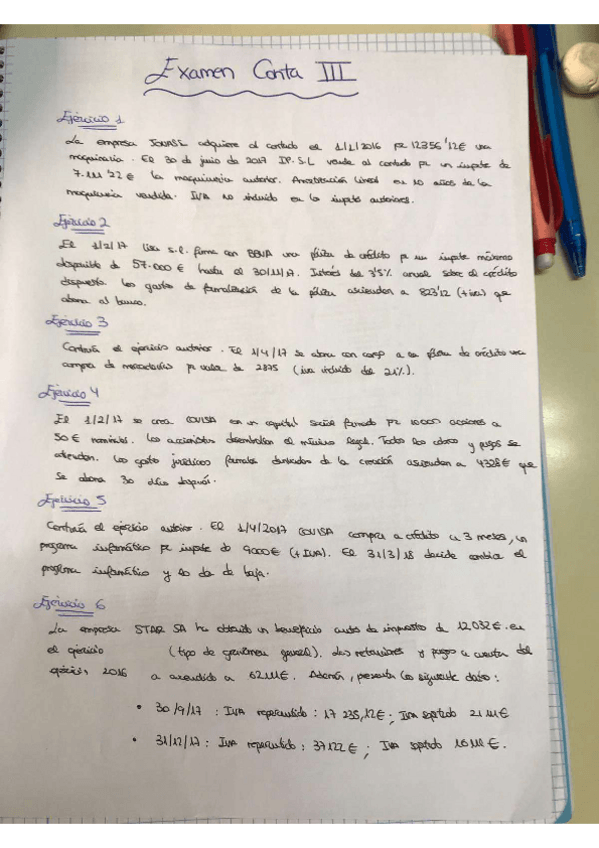 Examen Conta III
Ejercicio 1
La empresa JONASL adquiere al contado el 1/1/2016 por 12356'12€ una
maquinaria. El 30 de junio de 2017 IP.S.L vende al contado por un importe de
7.111'22€ la maquinaria anterior. Amortización lineal en 10 años de la
maquinaria vendida. IVA no incluido en los importes anteriores.
Ejercicio 2
El 1/2/17 s.l. firma con BBVA una póliza de crédito por un importe máximo
disponible de 57.000 € hasta el 30/11/17. Interés del 3'5% anual sobre el crédito
dispuesto. Los gastos de formalización de la póliza ascienden a 823'12 (+iva) que
abona al banco.
Ejercicio 3
Continúa el ejercicio anterior. El 1/4/17 se abona con cargo a la póliza de crédito una
compra de mercaderías por valor de 2875 (iva incluido del 21%).
Ejercicio 4
El 1/2/17 se crea COVISA con un capital social formado por 10000 acciones a
50€ nominales. Los accionistas desembolsan el mínimo legal. Todos los cobros y pagos se
. Los gastos jurídicos formales derivados de la creación ascienden a 4328€ que
se abona 30 días después.
Ejercicio 5
Continúa el ejercicio anterior. El 1/4/2017 COVISA compra a crédito a 3 meses, un
programa informático por importe de 9000€ (+IVA). El 31/3/18 decide cambiar el
programa informático y lo da de baja.
Ejercicio 6
La empresa STAR SA ha obtenido un beneficio antes de impuestos de 12.032€ en
el ejercicio (tipo de gravamen general). Las retenciones y pagos a cuenta del
ejercicio 2016 a ascendido a €. Además, presenta los siguientes datos:
• 30/9/17: IVA repercutido: 17 235,12€; IVA soportado 21 111€
• 31/12/17: IVA repercutido: 37122€; IVA soportado €.